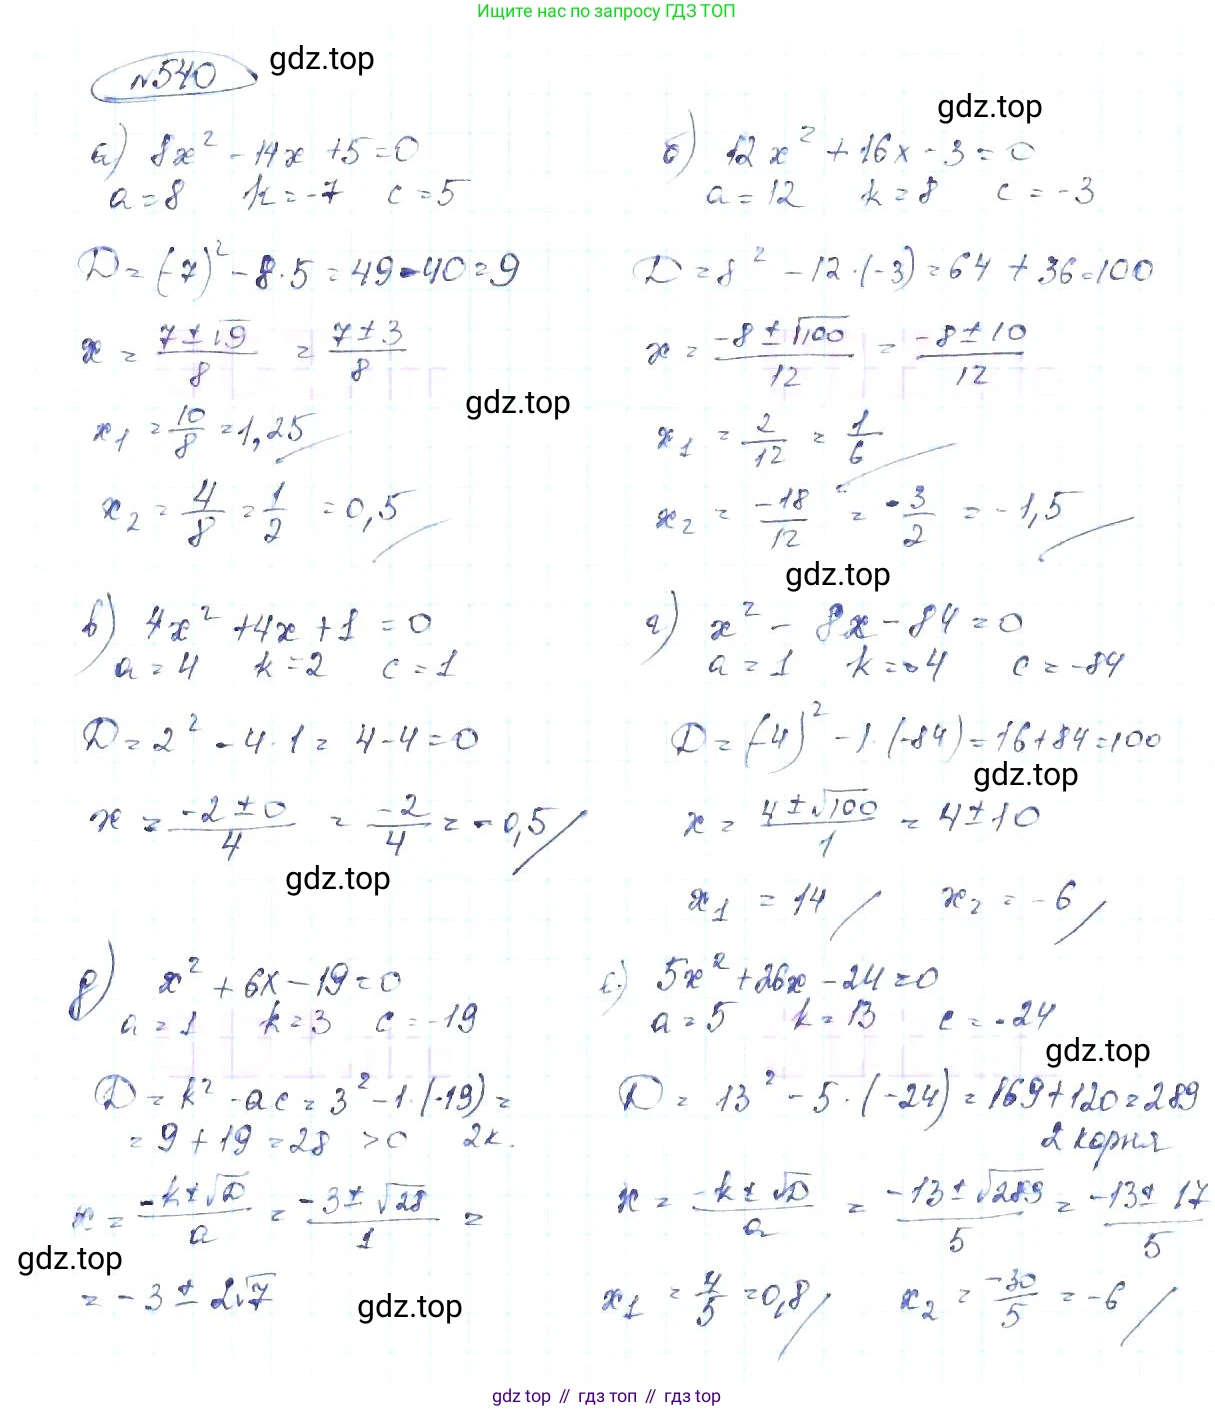 Ищите нас по запросу ГДЗ ТОП
№540
gdz.top
gdz.top
а) 8x² - 14x + 5 = 0
a = 8 k = -7 c = 5
D = (-7)² - 8·5 = 49 - 40 = 9
x = (7 ± √9)/8 = (7 ± 3)/8
x₁ = 10/8 = 1,25
gdz.top
x₂ = 4/8 = 1/2 = 0,5
б) 12x² + 16x - 3 = 0
a = 12 k = 8 c = -3
D = 8² - 12·(-3) = 64 + 36 = 100
x = (-8 ± √100)/12 = (-8 ± 10)/12
x₁ = 2/12 = 1/6
x₂ = -18/12 = -3/2 = -1,5
gdz.top
в) 4x² + 4x + 1 = 0
a = 4 k = 2 c = 1
D = 2² - 4·1 = 4 - 4 = 0
x = (-2 ± 0)/4 = -2/4 = -0,5
gdz.top
г) x² - 8x - 84 = 0
a = 1 k = -4 c = -84
D = (-4)² - 1·(-84) = 16 + 84 = 100
gdz.top
x = (4 ± √100)/1 = 4 ± 10
x₁ = 14 x₂ = -6
д) x² + 6x - 19 = 0
a = 1 k = 3 c = -19
D = k² - ac = 3² - 1·(-19) =
= 9 + 19 = 28 > 0 2к.
x = (-k ± √D)/a = (-3 ± √28)/1 =
gdz.top
= -3 ± 2√7
gdz.top
е) 5x² + 26x - 24 = 0
a = 5 k = 13 c = -24
gdz.top
D = 13² - 5·(-24) = 169 + 120 = 289
2 корня
x = (-k ± √D)/a = (-13 ± √289)/5 = (-13 ± 17)/5
x₁ = 4/5 = 0,8 x₂ = -30/5 = -6
gdz top // гдз топ // gdz top